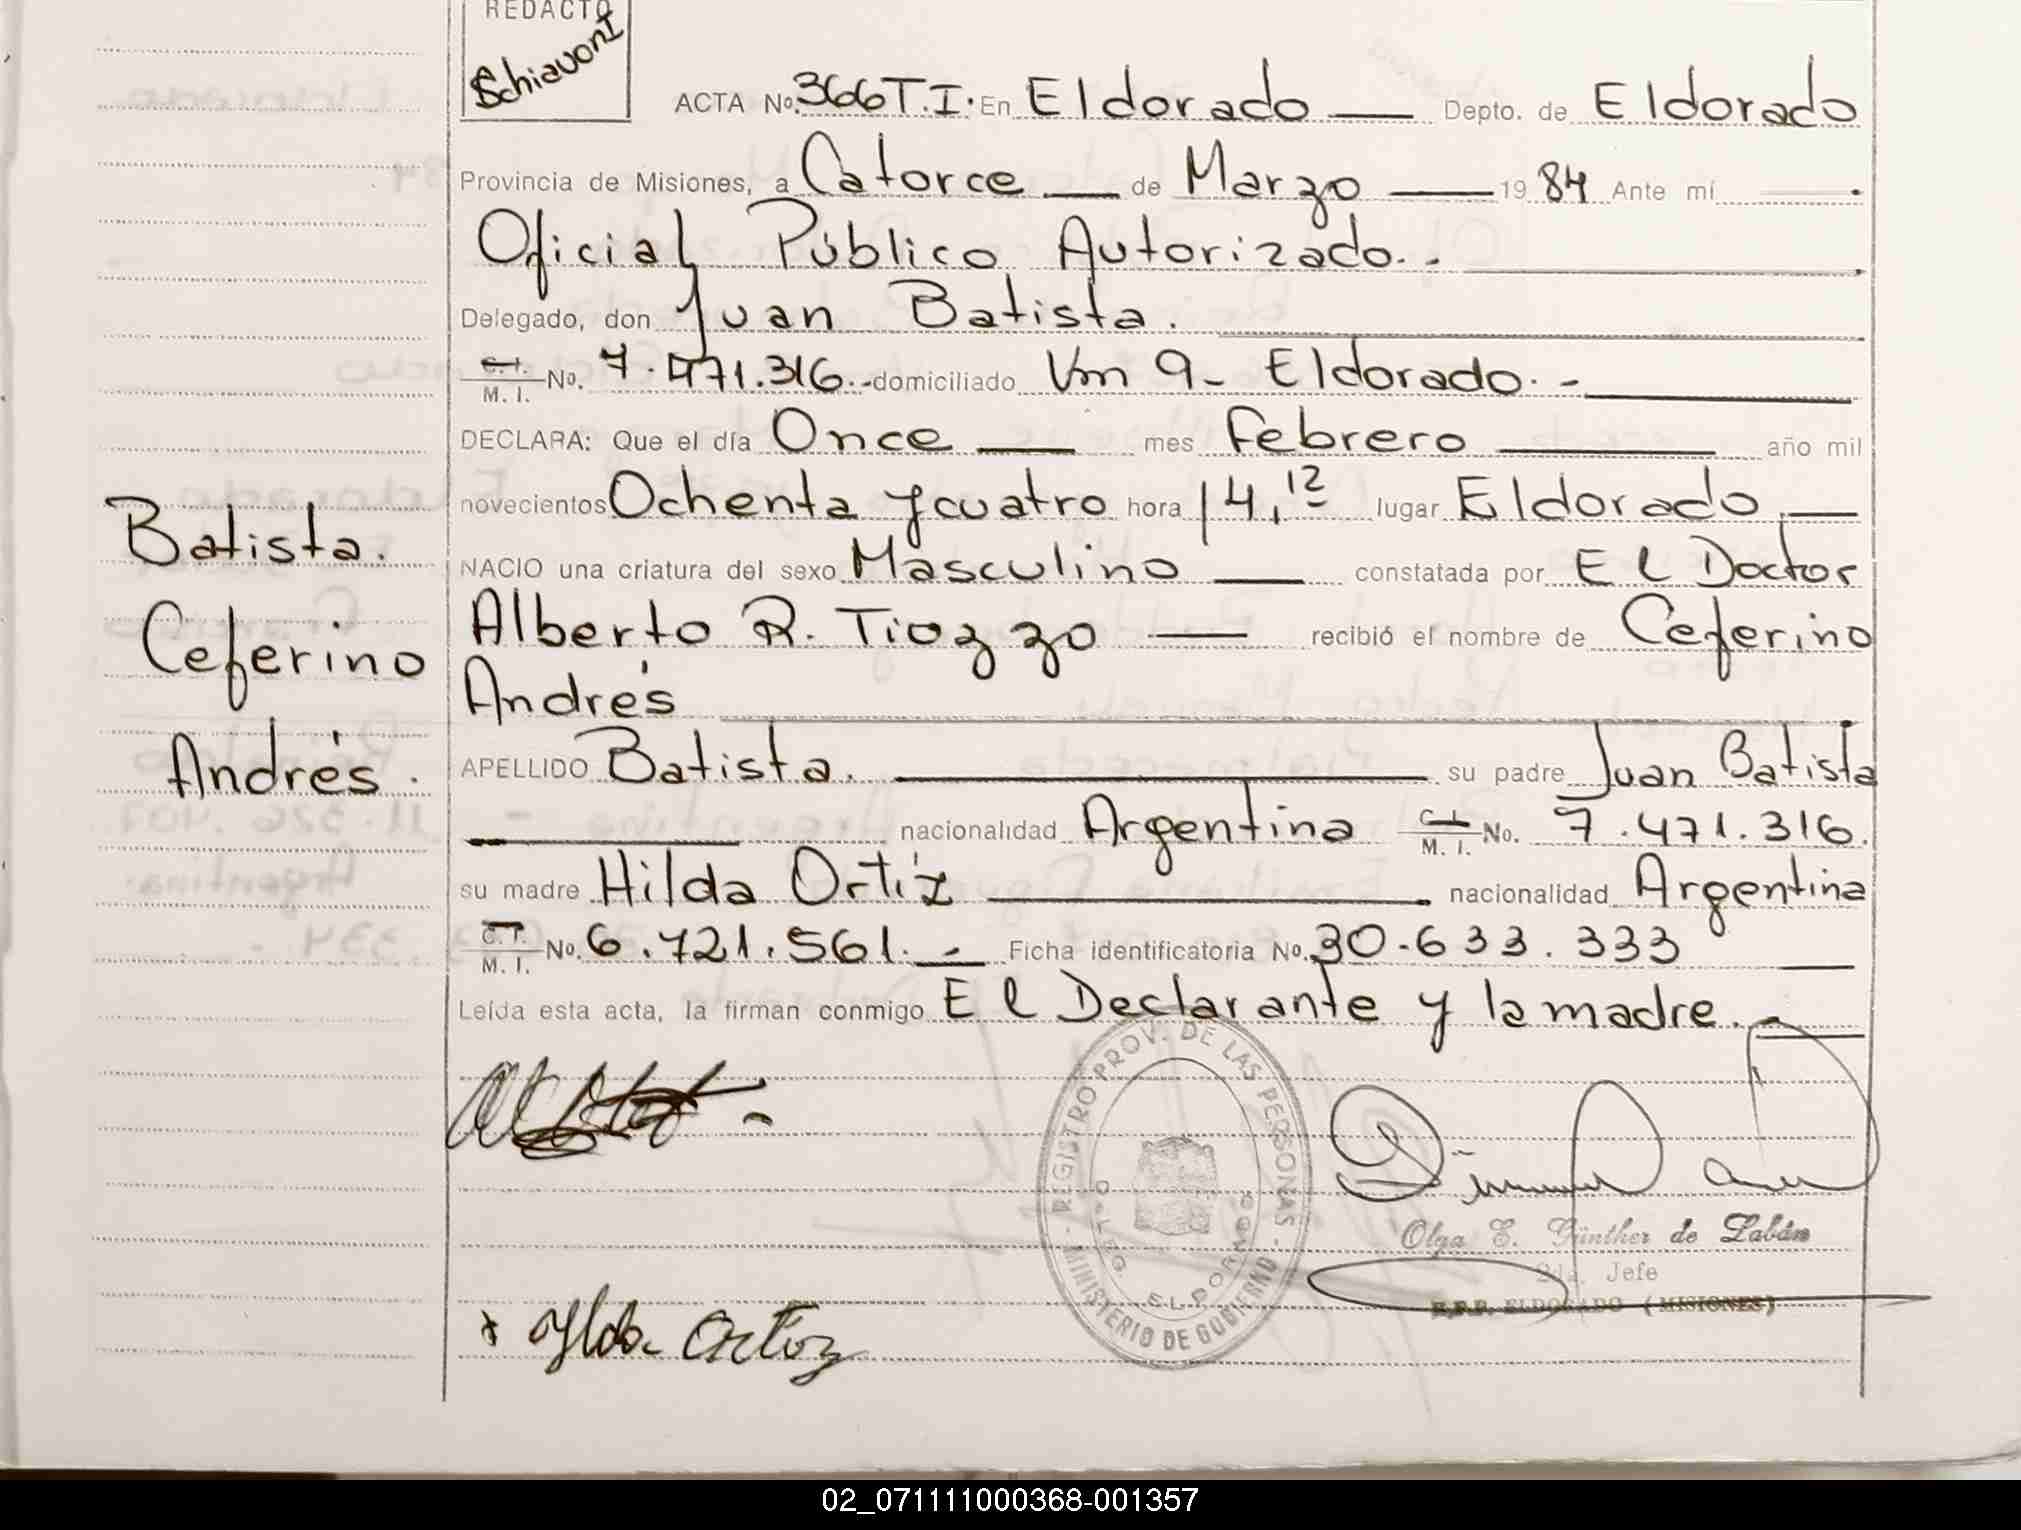 REDACTO
Schiavoni
ACTA No. 366 T.I. En Eldorado Depto. de Eldorado
Provincia de Misiones, a Catorce de Marzo 1984 Ante mí
Oficial Público Autorizado.
Delegado, don Juan Batista.
C. I. M. I. No. 7.471.316.- domiciliado Km 9- Eldorado.-
DECLARA: Que el día Once mes Febrero año mil
novecientos Ochenta y cuatro hora 14,12 lugar Eldorado
NACIO una criatura del sexo Masculino constatada por El Doctor
Alberto R. Tiozzo recibió el nombre de Ceferino
Andrés
APELLIDO Batista. su padre Juan Batista
nacionalidad Argentina C. I. M. I. No. 7.471.316.
su madre Hilda Ortíz nacionalidad Argentina
C. I. M. I. No. 6.721.561.- Ficha identificatoria No. 30.633.333
Leída esta acta, la firman conmigo El Declarante y la madre.-
Batista.
Ceferino
Andrés.
REGISTRO PROV. DE LAS PERSONAS - MINISTERIO DE GOBIERNO -
Olga E. Günther de Labán
2da. Jefe
ELDORADO (MISIONES)
Ylda Ortiz
02_071111000368-001357